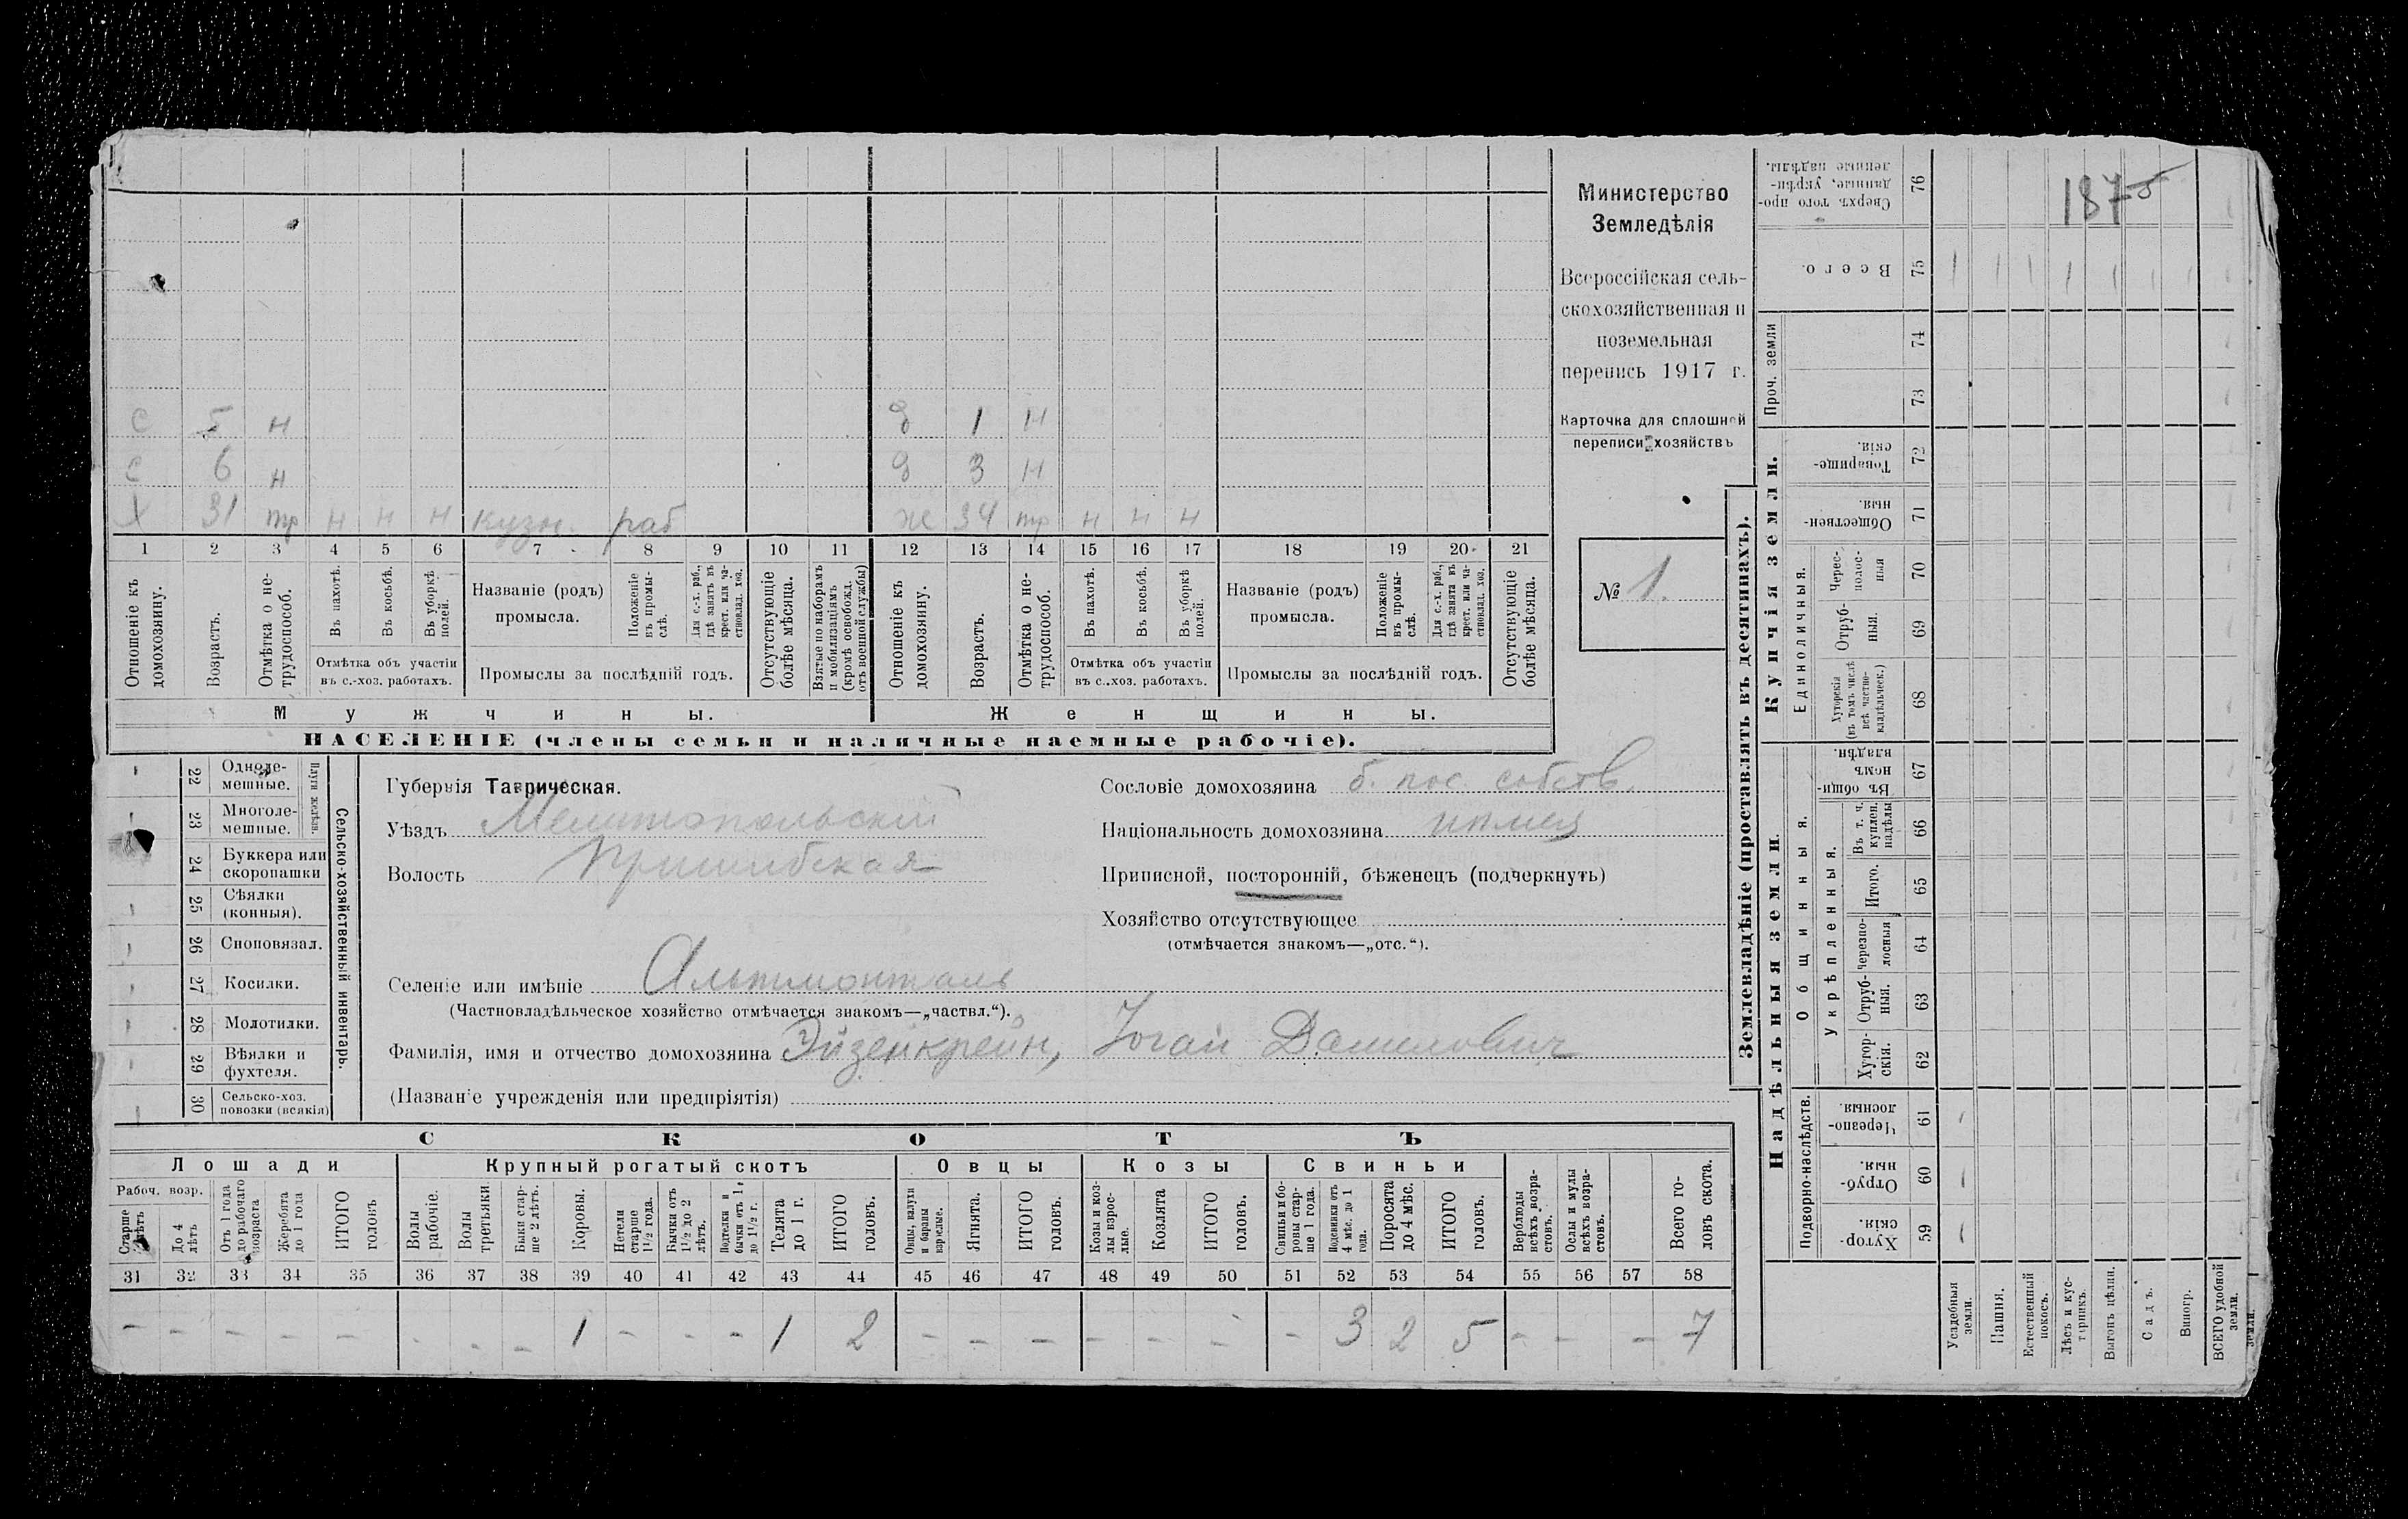 187
Министерство
Земледѣлія
Всероссійская сель-
скохозяйственная и
поземельная
перепись 1917 г.
Карточка для сплошной
переписи хозяйствъ
№ 1.
с 5 н
с 6 н
х 31 тр н н н кузн. раб
д 1 н
д 3 н
ж 34 тр н н н
1 2 3 4 5 6 7 8 9 10 11 12 13 14 15 16 17 18 19 20 21
Отношеніе къ домохозяину.
Возрастъ.
Отмѣтка о не-трудоспособ.
Въ пахотѣ.
Въ косьбѣ.
Въ уборкѣ полей.
Отмѣтка объ участіи
въ с.-хоз. работахъ.
Названіе (родъ)
промысла.
Положеніе въ промы-слѣ.
Для с.-х. раб., гдѣ занятъ въ крест. или ча-стновлад. хоз.
Промыслы за послѣдній годъ.
Отсутствующіе болѣе мѣсяца.
Взятые по наборамъ и мобилизаціямъ (кромѣ освобожд. отъ военной службы)
Отношеніе къ домохозяину.
Возрастъ.
Отмѣтка о не-трудоспособ.
Въ пахотѣ.
Въ косьбѣ.
Въ уборкѣ полей.
Отмѣтка объ участіи
въ с..хоз. работахъ.
Названіе (родъ)
промысла.
Положеніе въ промы-слѣ.
Для с.-х. раб., гдѣ занята въ крест. или ча-стновлад. хоз.
Промыслы за послѣдній годъ.
Отсутствующіе болѣе мѣсяца.
Мужчины.
Женщины.
НАСЕЛЕНІЕ (члены семьи и наличные наемные рабочіе).
Сельско-хозяйственный инвентарь.
Плуги желѣзн.
22 Одноле-мешные.
23 Многоле-мешные.
24 Буккера или скоропашки
25 Сѣялки (конныя).
26 Сноповязал.
27 Косилки.
28 Молотилки.
29 Вѣялки и фухтеля.
30 Сельско-хоз. повозки (всякія)
Губернія Таврическая.
Уѣздъ Мелитопольскій
Волость Пришибская
Сословіе домохозяина б. пос. собств.
Національность домохозяина
Приписной, посторонній, бѣженецъ (подчеркнуть)
Хозяйство отсутствующее
(отмѣчается знакомъ—„отс.“).
Селеніе или имѣніе Альтмонталь
(Частновладѣльческое хозяйство отмѣчается знакомъ—„частвл.“).
Фамилія, имя и отчество домохозяина Эйзенкрейн, Іоган Данилович
(Названіе учрежденія или предпріятія)
СКОТЪ
Лошади
Крупный рогатый скотъ
Овцы
Козы
Свиньи
Рабоч. возр.
Старше 4 лѣтъ
До 4 лѣтъ
Отъ 1 года до рабочаго возраста
Жеребята до 1 года
ИТОГО головъ
Волы рабочіе.
Волы третьяки.
Быки стар-ше 2 лѣтъ.
Коровы.
Нетели старше 1½ года.
Бычки отъ 1½ до 2 лѣтъ.
Подтелки и бычки отъ 1 г. до 1½ г.
Телята до 1 г.
ИТОГО головъ.
Овцы, валухи и бараны взрослые.
Ягнята.
ИТОГО головъ.
Козы и коз-лы взрос-лые.
Козлята
ИТОГО головъ.
Свиньи и бо-ровы стар-ше 1 года.
Подсвинки отъ 4 мѣс. до 1 года.
Поросята до 4 мѣс.
ИТОГО головъ.
Верблюды всѣхъ возра-стовъ.
Ослы и мулы всѣхъ возра-стовъ.
Всего го-ловъ скота.
31 32 33 34 35 36 37 38 39 40 41 42 43 44 45 46 47 48 49 50 51 52 53 54 55 56 57 58
– – – – – – – – 1 – – – 1 2 – – – – – – – 3 2 5 – – – 7
Землевладѣніе (проставлять въ десятинахъ).
Купчія земли.
Надѣльныя земли.
Сверхъ того про-данные, укрѣп-ленные надѣлы. 76
Всего. 75
Проч. земли 74 73
Товарище-скія. 72
Обществен-ныя. 71
Единоличныя.
Черес-полос-ныя 70
Отруб-ныя. 69
Хуторскія (въ томъ числѣ всѣ частно-владѣльческ.) 68
Общинныя.
Въ общин-номъ владѣн. 67
Укрѣпленныя.
Въ т. ч. куплен. надѣлы 66
Итого. 65
Черезпо-лосныя 64
Отруб-ныя. 63
Хутор-скія. 62
Подворно-наслѣдств.
Черезпо-лосныя. 61
Отруб-ныя. 60
Хутор-скія. 59
Усадебныя земли.
Пашня.
Естественный покосъ.
Лѣсъ и кус-тарникъ.
Выгонъ цѣлин.
Садъ.
Виногр.
ВСЕГО удобной земли.